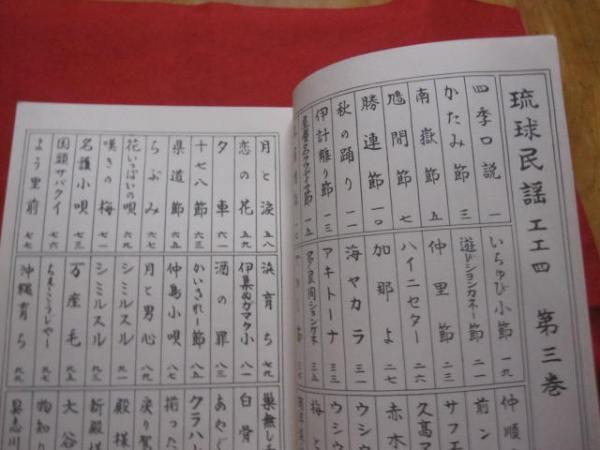 琉球民謡 工工四 第三巻
四季口説 一
かたみ節 三
南嶽節 五
鳩間節 七
勝連節 一〇
秋の踊り 一一
伊計離り節 一三
いちゅび小節 一九
遊びションカネー節 二一
仲里節 二三
ハイニセター 二六
加那よ 二七
海ヤカラ 三一
アキトーナ 三三
多良間ションカネ 三五
仲順
前ン
サフエ
久高マ
赤木
ウシウ
ウシウ
梅と
月と涙 五八
恋の花 五九
夕車 六一
十七八節 六三
県道節 六五
らぶみ 六七
花いっぱいの 六九
嘆きの梅
名護小唄
国頭サバクイ 七六
よう里前 七七
浜育ち 七九
伊集ぬガマク小 八一
酒の罪 八三
かいされー節 八五
仲島小唄 八七
月と男心 八九
シミルスル 九一
シミルスル 九一
万座毛 九五
沖縄育ち 九九
巣無し
白骨
あやぐ
クラハー
揃った
戻り駕
殿様
新殿様
大谷
物知り
具志川